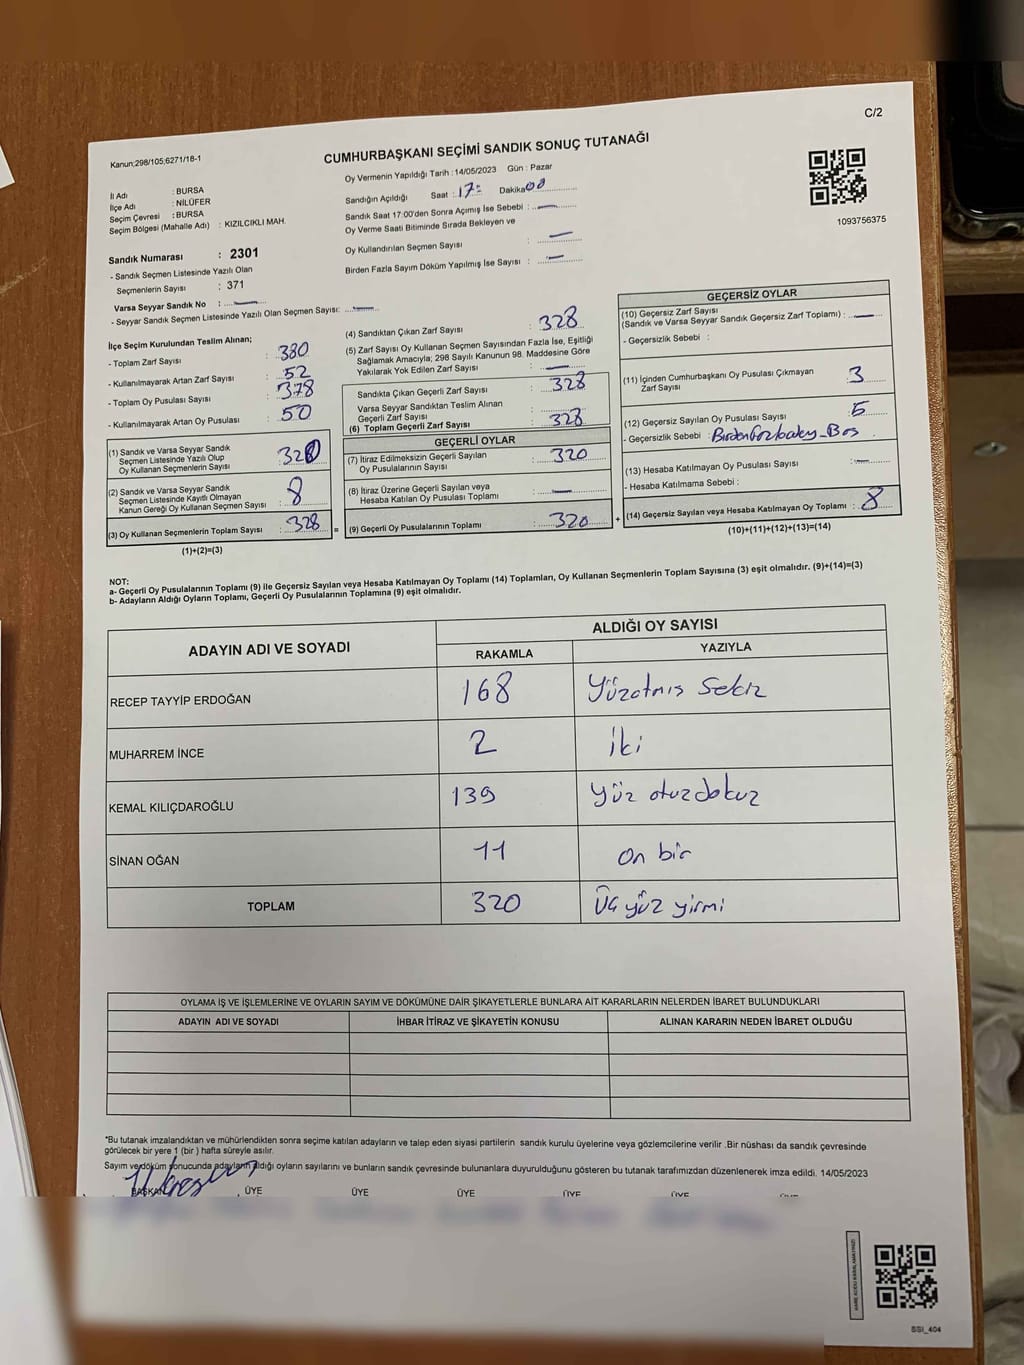 C/2
Kanun;298/105;6271/18-1
CUMHURBAŞKANI SEÇİMİ SANDIK SONUÇ TUTANAĞI
1093756375
İl Adı : BURSA
İlçe Adı : NİLÜFER
Seçim Çevresi : BURSA
Seçim Bölgesi (Mahalle Adı) : KIZILCIKLI MAH.
Sandık Numarası : 2301
- Sandık Seçmen Listesinde Yazılı Olan
Seçmenlerin Sayısı : 371
Varsa Seyyar Sandık No : —
- Seyyar Sandık Seçmen Listesinde Yazılı Olan Seçmen Sayısı: —
Oy Vermenin Yapıldığı Tarih : 14/05/2023 Gün : Pazar
Sandığın Açıldığı Saat : 17: Dakika 00
Sandık Saat 17:00'den Sonra Açımış İse Sebebi : —
Oy Verme Saati Bitiminde Sırada Bekleyen ve
Oy Kullandırılan Seçmen Sayısı : —
Birden Fazla Sayım Döküm Yapılmış İse Sayısı : —
İlçe Seçim Kurulundan Teslim Alınan;
- Toplam Zarf Sayısı : 380
- Kullanılmayarak Artan Zarf Sayısı : 52
- Toplam Oy Pusulası Sayısı : 378
- Kullanılmayarak Artan Oy Pusulası : 50
(1) Sandık ve Varsa Seyyar Sandık
Seçmen Listesinde Yazılı Olup
Oy Kullanan Seçmenlerin Sayısı : 320
(2) Sandık ve Varsa Seyyar Sandık
Seçmen Listesinde Kayıtlı Olmayan
Kanun Gereği Oy Kullanan Seçmen Sayısı : 8
(3) Oy Kullanan Seçmenlerin Toplam Sayısı : 328 =
(1)+(2)=(3)
(4) Sandıktan Çıkan Zarf Sayısı : 328
(5) Zarf Sayısı Oy Kullanan Seçmen Sayısından Fazla İse, Eşitliği
Sağlamak Amacıyla; 298 Sayılı Kanunun 98. Maddesine Göre
Yakılarak Yok Edilen Zarf Sayısı : —
Sandıkta Çıkan Geçerli Zarf Sayısı : 328
Varsa Seyyar Sandıktan Teslim Alınan
Geçerli Zarf Sayısı :
(6) Toplam Geçerli Zarf Sayısı : 328
GEÇERLİ OYLAR
(7) İtiraz Edilmeksizin Geçerli Sayılan
Oy Pusulalarının Sayısı : 320
(8) İtiraz Üzerine Geçerli Sayılan veya
Hesaba Katılan Oy Pusulası Toplamı : —
(9) Geçerli Oy Pusulalarının Toplamı : 320 +
GEÇERSİZ OYLAR
(10) Geçersiz Zarf Sayısı
(Sandık ve Varsa Seyyar Sandık Geçersiz Zarf Toplamı) : —
- Geçersizlik Sebebi :
(11) İçinden Cumhurbaşkanı Oy Pusulası Çıkmayan
Zarf Sayısı : 3
(12) Geçersiz Sayılan Oy Pusulası Sayısı : 5
- Geçersizlik Sebebi :
(13) Hesaba Katılmayan Oy Pusulası Sayısı : —
- Hesaba Katılmama Sebebi :
(14) Geçersiz Sayılan veya Hesaba Katılmayan Oy Toplamı : 8
(10)+(11)+(12)+(13)=(14)
NOT:
a- Geçerli Oy Pusulalarının Toplamı (9) ile Geçersiz Sayılan veya Hesaba Katılmayan Oy Toplamı (14) Toplamları, Oy Kullanan Seçmenlerin Toplam Sayısına (3) eşit olmalıdır. (9)+(14)=(3)
b- Adayların Aldığı Oyların Toplamı, Geçerli Oy Pusulalarının Toplamına (9) eşit olmalıdır.
ADAYIN ADI VE SOYADI ALDIĞI OY SAYISI
RAKAMLA YAZIYLA
RECEP TAYYİP ERDOĞAN 168 Yüzatmış Sekiz
MUHARREM İNCE 2 İki
KEMAL KILIÇDAROĞLU 139 Yüz otuzdokuz
SİNAN OĞAN 11 On bir
TOPLAM 320 Üç yüz yirmi
OYLAMA İŞ VE İŞLEMLERİNE VE OYLARIN SAYIM VE DÖKÜMÜNE DAİR ŞİKAYETLERLE BUNLARA AİT KARARLARIN NELERDEN İBARET BULUNDUKLARI
ADAYIN ADI VE SOYADI İHBAR İTİRAZ VE ŞİKAYETİN KONUSU ALINAN KARARIN NEDEN İBARET OLDUĞU
*Bu tutanak imzalandıktan ve mühürlendikten sonra seçime katılan adayların ve talep eden siyasi partilerin sandık kurulu üyelerine veya gözlemcilerine verilir .Bir nüshası da sandık çevresinde
görülecek bir yere 1 (bir ) hafta süreyle asılır.
Sayım ve döküm sonucunda adayların aldığı oyların sayılarını ve bunların sandık çevresinde bulunanlara duyurulduğunu gösteren bu tutanak tarafımızdan düzenlenerek imza edildi. 14/05/2023
BAŞKAN ÜYE ÜYE ÜYE ÜYE ÜYE
SSI_404